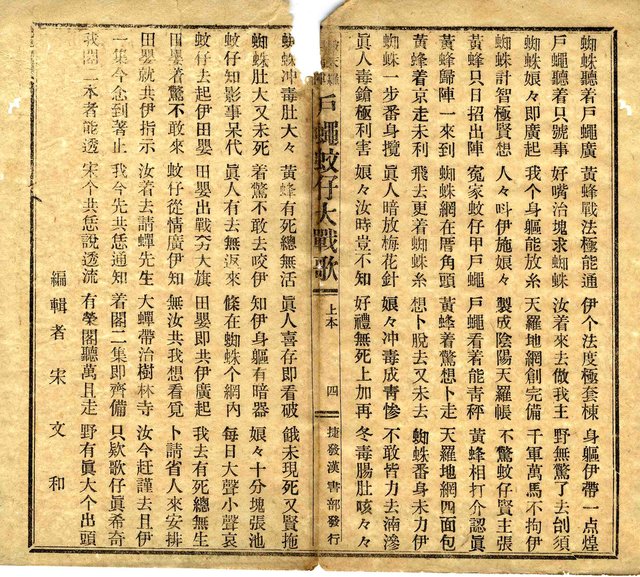 蜘蛛聽着戸蠅廣 黃蜂戰法極能通 伊个法度極套棟 身軀伊帶一点煌
戸蠅聽着只號事 好嘴治塊求蜘蛛 汝着來去做我主 野無驚了去刣須
蜘蛛娘々即廣起 我个身軀能放糸 天羅地網創完備 千軍萬馬不拘伊
蜘蛛計智極賢想 人々呌伊施娘々 製成陰陽天羅帳 不驚蚊仔賢主張
黃蜂只日招出陣 冤家蚊仔甲戸蠅 戸蠅看着能青秤 黃蜂相打介認眞
黃蜂歸陣一來到 蜘蛛網在厝角頭 黃蜂着驚想卜走 天羅地網四面包
黃蜂着京走未利 飛去更着蜘蛛糸 想卜脫去又未去 蜘蛛番身未力伊
蜘蛛一步番身攪 眞人暗放梅花針 娘々冲毒成靑慘 不敢皆力去湳滲
眞人毒鎗極利害 娘々汝時豈不知 好禮無死上加再 冬毒腸肚咳々々
戸蠅蚊仔大戰歌 上本 四 捷發漢書部發行
蜘蛛冲毒肚大々 黃蜂有死總無活 眞人喜存即看破 餓未現死又賢拖
蜘蛛肚大又未死 着驚不敢去咬伊 知伊身軀有暗器 娘々十分塊張池
蚊仔知影事呆代 眞人有去無返來 條在蜘蛛个網內 每日大聲小聲哀
蚊仔去起伊田嬰 田嬰出戰夯大旗 田嬰即共伊廣起 我去有死總無生
田嬰着驚不敢來 蚊仔從情廣伊知 無汝共我想看覓 卜請省人來安排
田嬰就共伊指示 汝着去請蟬先生 大蟬帶治樹林寺 汝今赶謹去且伊
一集今念到着止 我今先共恁通知 着閣二集即齊備 只欵歌仔眞希奇
我閣二本者能透 宋个共恁說透流 有榮閣聽萬且走 野有眞大个出頭
編輯者 宋 文 和